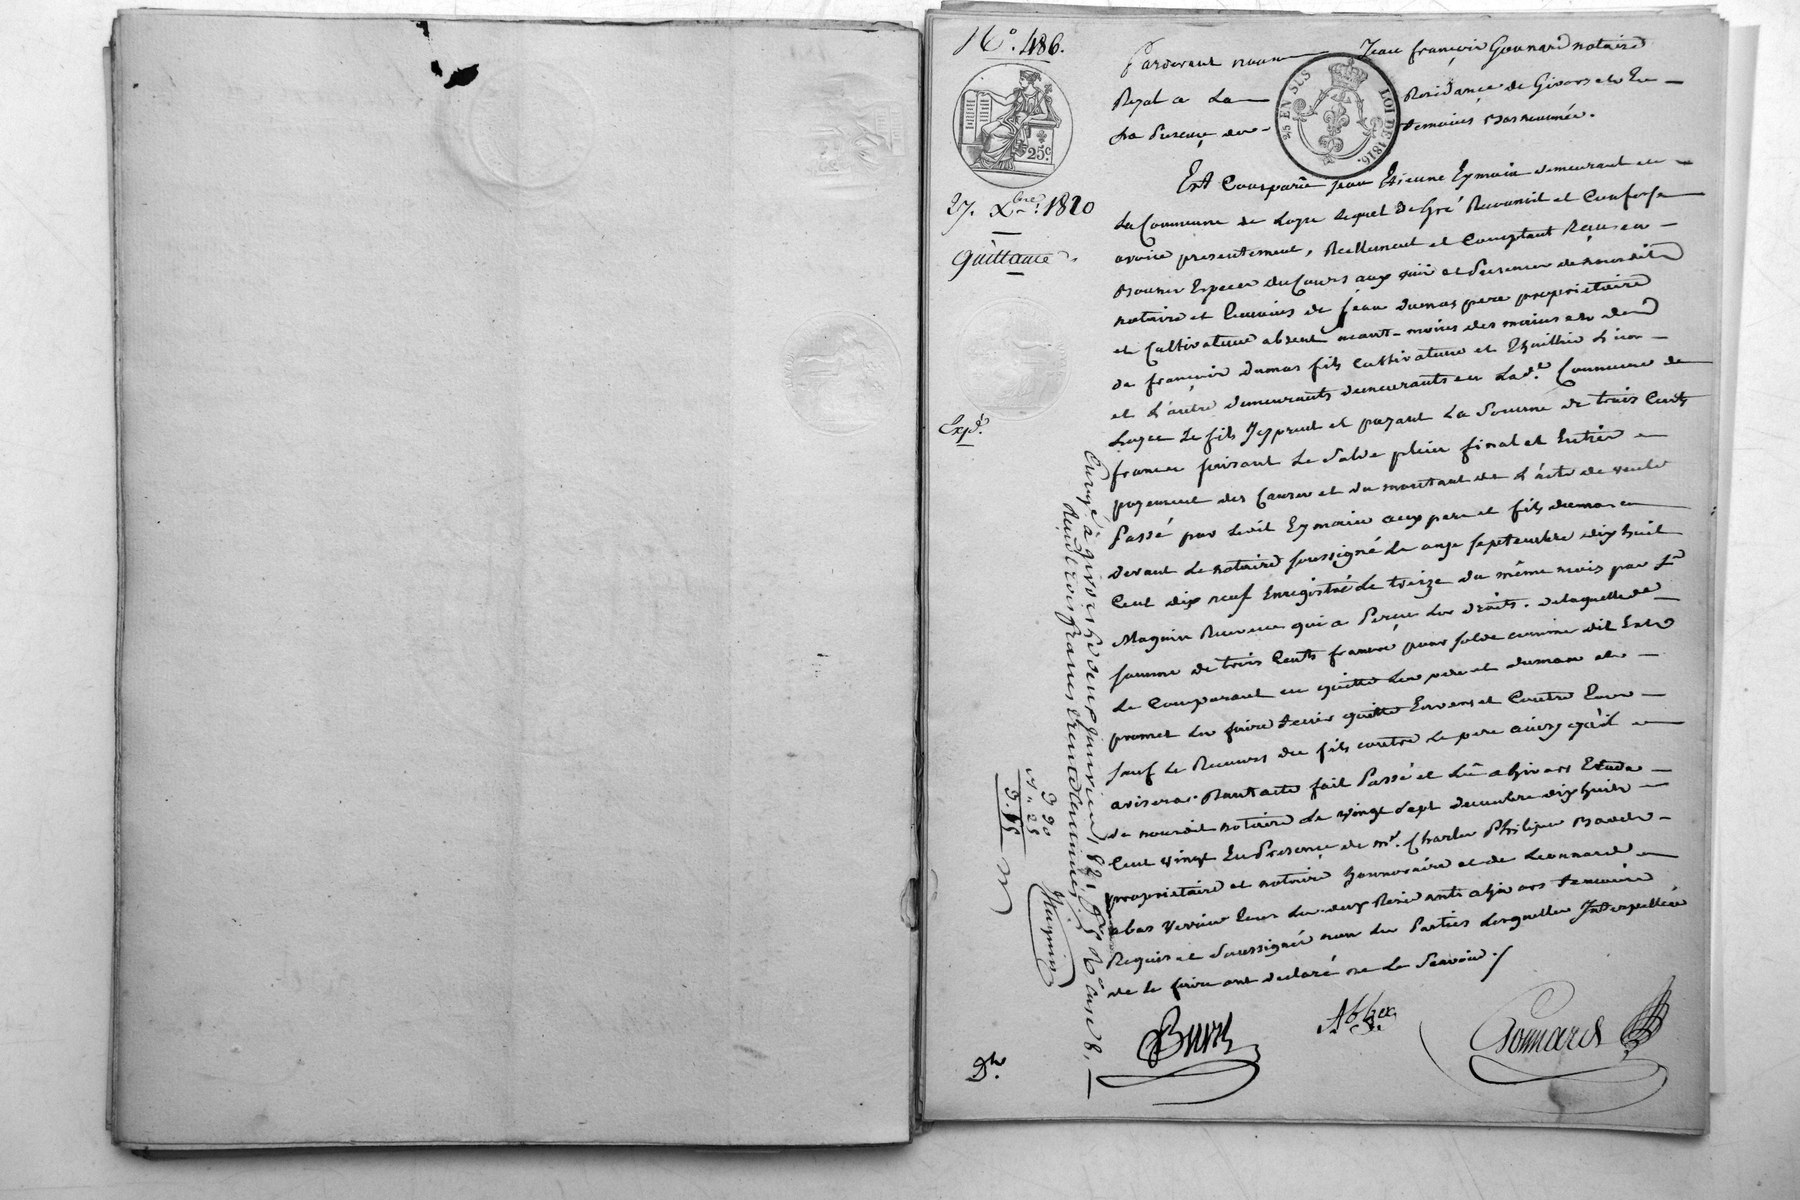 N°. 486.
25 c.
27. Xbre. 1820
Quittance.
Expd.
Pardevant nous Jean françois Gonnard notaire
25 EN SUS LOI DE 1816.
Royal a La Residance de Givors et En
La presence des temoins bas nommés.
Est Comparû jean Etienne Eymain demeurant en
La Commune de Loyre Lequel De Gré Reconnoit et Confesse
avoir presentement, Reellement et Comptant Reçu en
Bonnes Especes du Cours aux vüe et presence de nousdit
notaire et temoins de jean dumas pere proprietaire
et Cultivateur absent neant-moins des mains et deniers
de françois dumas fils Cultivateur et L'un
et L'autre demeurants en Lade. Commune de
Loyre Le fils present et payant La Somme de trois Cents
francs faisant Le Solde plein final et Entier
payement des Causes et du montant de L'acte de vente
Passé par Ledit Eymain aux pere et fils dumas
devant Le notaire soussigné Le onze septembre dix huit
Cent dix neuf Enregistré Le treize du même mois par Mr.
Magnin Receveur qui a Perçu Les droits. de laquelle de
somme de trois Cents francs pour solde comme dit Est
Le Comparant en quitte Les pere et dumas et
promet Les faire tenir quitte Envers et Contre tous
sauf Le Recours du fils contre Le pere ainsy qu'il
avisera. Dont acte fait Passé et Lû a Givors Etude
de nousdit notaire Le vingt sept decembre dix huit
Cent vingt En Presence de Mr. Charles Philippe
proprietaire et notaire honnoraire et de Leonnard
tous Les deux Residants a Givors temoins
Requis et Soussignés non Les Parties Lesquelles Interpellées
de le faire ont declaré ne Le Scavoir./
Enregé à givors le deux janvier 1821
Reçu trois francs trente centimes
3 30
3.
Magnin
Gonnard